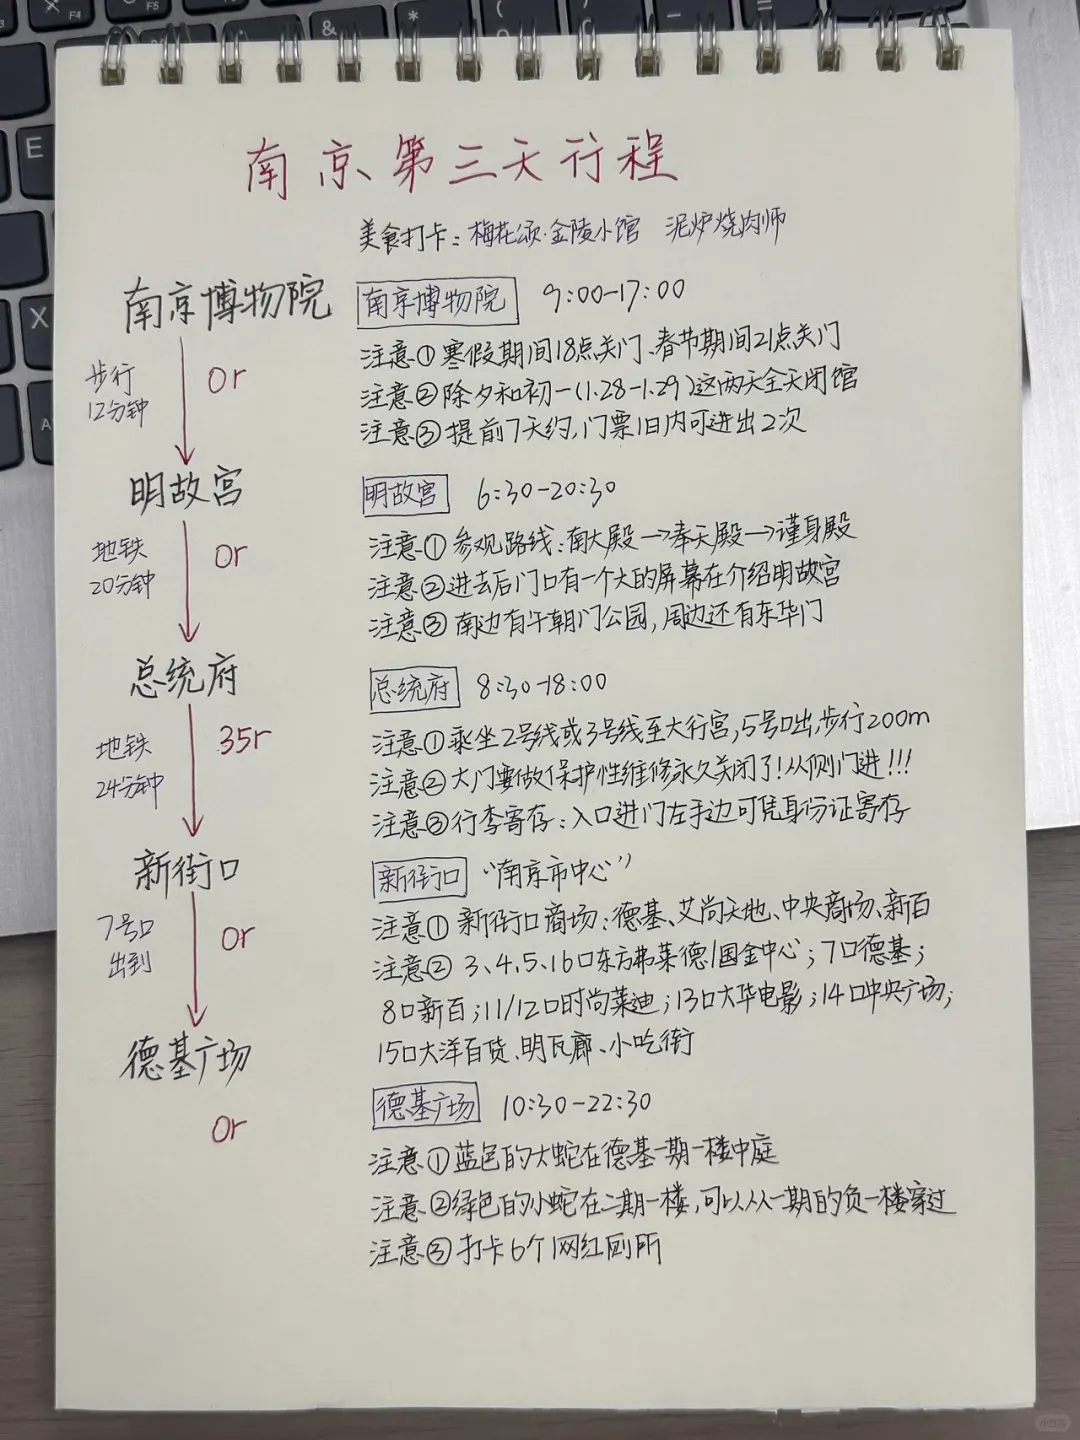 南京第三天行程
美食打卡：梅花颂·金陵小馆 泥炉烧肉师
南京博物院
步行
12分钟
0r
明故宫
地铁
20分钟
0r
总统府
地铁
24分钟
35r
新街口
7号口
出到
0r
德基广场
0r
南京博物院 9:00-17:00
注意① 寒假期间18点关门、春节期间21点关门
注意② 除夕和初一(1.28-1.29)这两天全天闭馆
注意③ 提前7天约,门票1日内可进出2次
明故宫 6:30-20:30
注意① 参观路线:南大殿→奉天殿→谨身殿
注意②进去后门口有一个大的屏幕在介绍明故宫
注意③ 南边有午朝门公园,周边还有东华门
总统府 8:30-18:00
注意①乘坐2号线或3号线至大行宫,5号口出,步行200m
注意② 大门要做保护性维修永久关闭了!从侧门进!!!
注意③行李寄存:入口进门左手边可凭身份证寄存
新街口 “南京市中心”
注意① 新街口商场:德基、艾尚天地、中央商场、新百
注意② 3、4、5、16口东方弗莱德/国金中心;7口德基;
8口新百;11/12口时尚莱迪;13口大华电影;14口中央广场;
15口大洋百货、明瓦廊、小吃街
德基广场 10:30-22:30
注意①蓝色的大蛇在德基一期一楼中庭
注意②绿色的小蛇在二期一楼,可以从一期的负一楼穿过
注意③打卡6个网红厕所
X
F4
F5
&
*
E
X
A
小红书